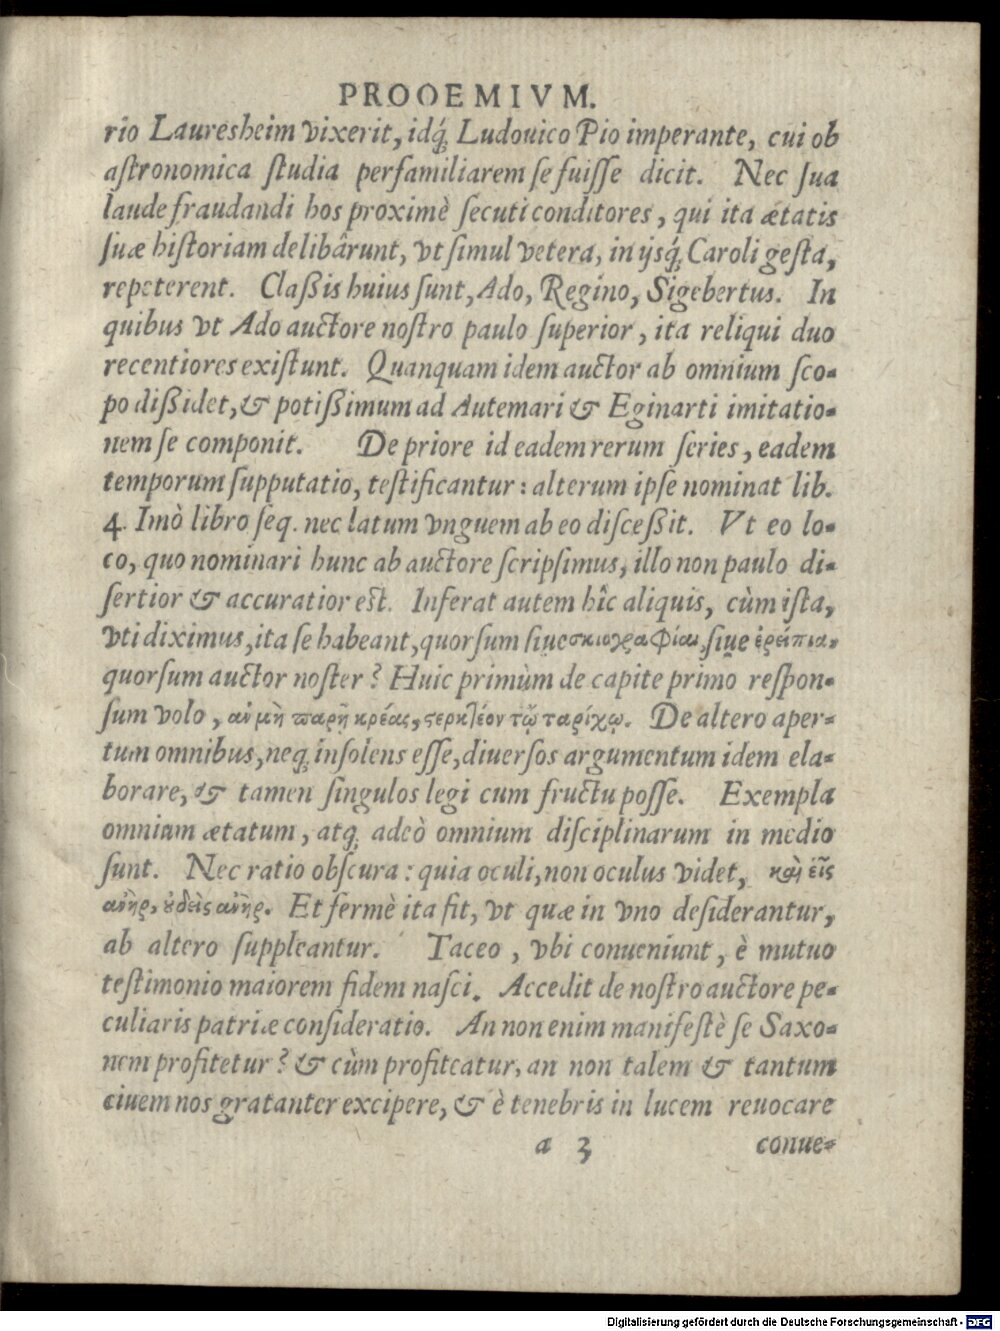 PROOEMIVM.
rio Lauresheim vixerit, idq́; Ludouico Pio imperante, cui ob
aſtronomica ſtudia perfamiliarem ſe fuiſſe dicit. Nec ſua
laude fraudandi hos proximè ſecuti conditores, qui ita ætatis
ſuæ hiſtoriam delibârunt, vt ſimul vetera, in ijsq́; Caroli geſta,
repeterent. Claßis huius ſunt, Ado, Regino, Sigebertus. In
quibus vt Ado auctore noſtro paulo ſuperior, ita reliqui duo
recentiores exiſtunt. Quanquam idem auctor ab omnium ſco-
po dißidet, & potißimum ad Autemari & Eginarti imitatio-
nem ſe componit. De priore id eadem rerum ſeries, eadem
temporum ſupputatio, teſtificantur: alterum ipſe nominat lib.
4. Imò libro ſeq. nec latum vnguem ab eo diſceßit. Vt eo lo-
co, quo nominari hunc ab auctore ſcripſimus, illo non paulo di-
ſertior & accuratior eſt. Inferat autem hîc aliquis, cùm iſta,
vti diximus, ita ſe habeant, quorſum ſiue σκιογραφίαι, ſiue ἐρείπια,
quorſum auctor noſter? Huic primùm de capite primo reſpon-
ſum volo, ἂν μὴ παρῇ κρέας, στερκτέον τῷ ταρίχῳ. De altero aper-
tum omnibus, neq; inſolens eſſe, diuerſos argumentum idem ela-
borare, & tamen ſingulos legi cum fructu poſſe. Exempla
omnium ætatum, atq; adeò omnium diſciplinarum in medio
ſunt. Nec ratio obſcura: quia oculi, non oculus videt, καὶ εἷς
ἀνὴρ, οὐδεὶς ἀνήρ. Et fermè ita fit, vt quæ in vno deſiderantur,
ab altero ſuppleantur. Taceo, vbi conueniunt, è mutuo
teſtimonio maiorem fidem naſci. Accedit de noſtro auctore pe-
culiaris patriæ conſideratio. An non enim manifeſtè ſe Saxo-
nem profitetur? & cùm profiteatur, an non talem & tantum
ciuem nos gratanter excipere, & è tenebris in lucem reuocare
a 3 conue-
Digitalisierung gefördert durch die Deutsche Forschungsgemeinschaft - DFG